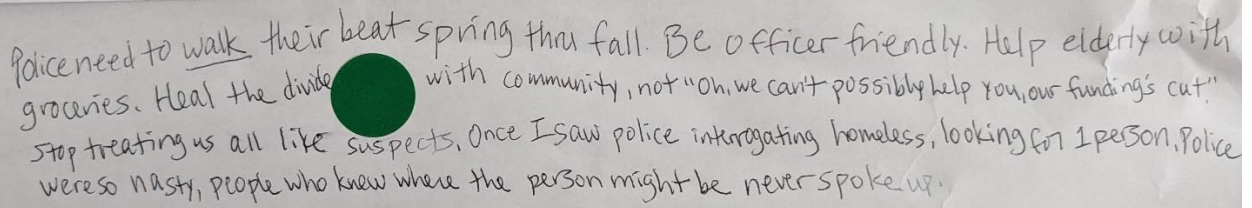 Police need to walk their beat spring thru fall. Be officer friendly. Help elderly with
groceries. Heal the divide with community, not "Oh, we can't possibly help you, our funding's cut."
Stop treating us all like suspects. Once I saw police interrogating homeless, looking for 1 person. Police
were so nasty, people who knew where the person might be never spoke up.